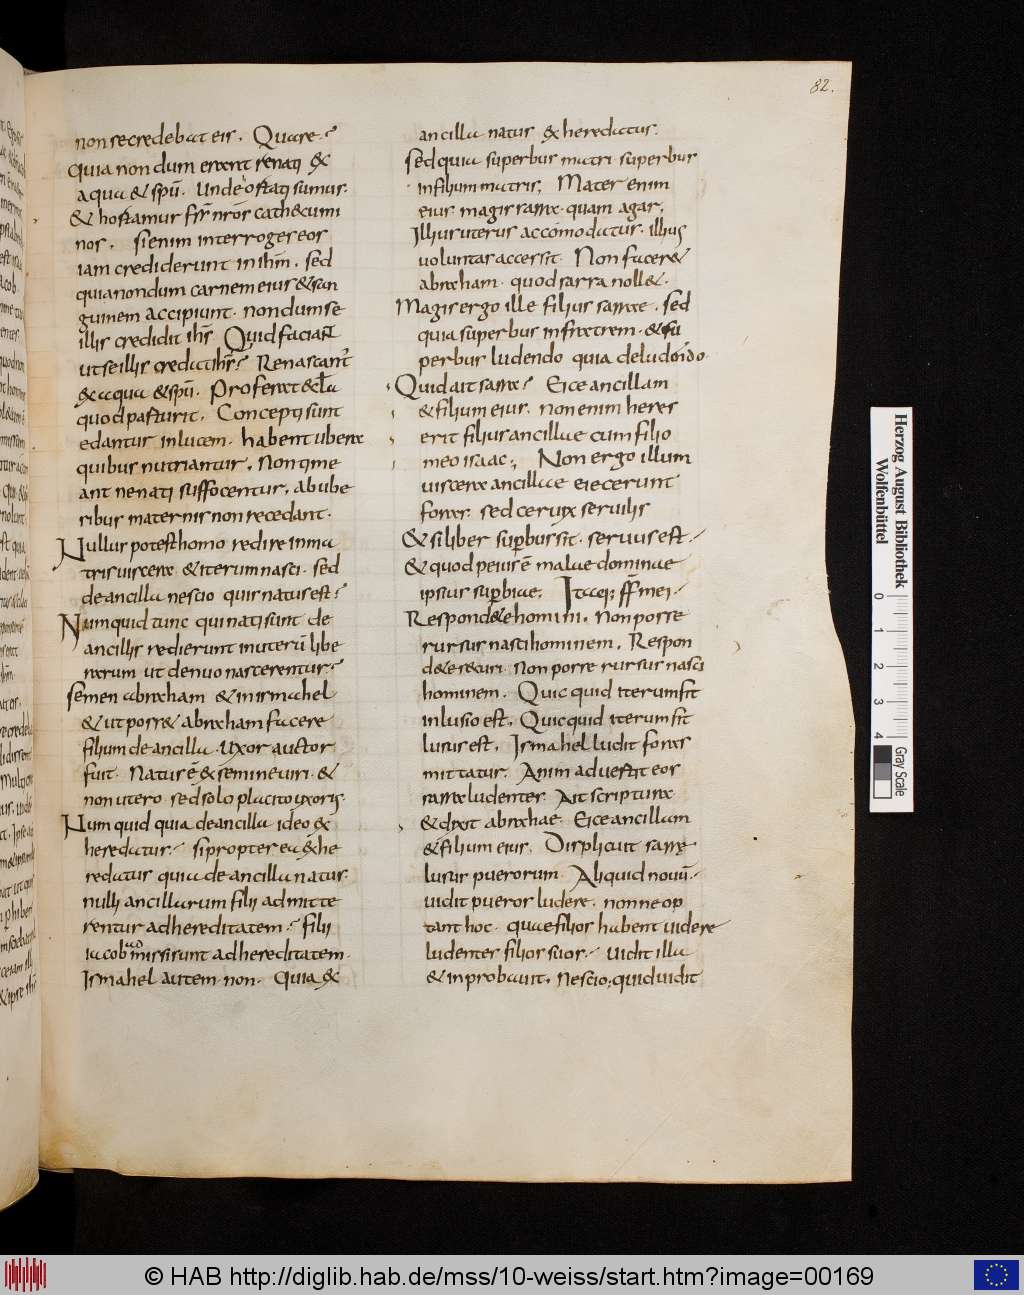 82.
non se credebat eis. Quare?
Quia non dum erant renati ex
aqua & spū. Unde ortati sumus.
& hortamur frr̄ nrōs cathecumi
nos. Si enim interroges eos
iam crediderunt in ihm̄. sed
quia nondum carnem eius & san
guinem accipiunt. nondum se
illis credidit ihs̄. Quid faciant
ut se illis credat ihs̄? Renascantr̄
ex aqua & spū. Proferat eccla
quod parturit. Concepti sunt
edantur in lucem. habent ubera
quibus nutriantur. Non time
ant ne nati suffocentur. ab ube
ribus maternis non recedant.
Nullus potest homo redire in ma
tris viscera. & iterum nasci. sed
de ancilla nescio quis natus est?
Numquid tunc qui nati sunt de
ancillis redierunt in uterū libe
rarum ut denuo nascerentur?
semen abraham & in ismahel
& ut posset abraham facere
filium de ancilla. uxor auctor
fuit. Natus ē ex semine viri. &
non utero. sed solo placito uxoris.
Numquid quia de ancilla ideo ex
heredatus? si propterea exhe
redatus quia de ancilla natus.
nulli ancillarum filii admitte
rentur ad hereditatem? filii
iacob admissi sunt ad hereditatem.
Ismahel autem non. Quia ex
ancilla natus exheredatus.
sed quia superbus matri superbus
in filium matris; Mater enim
eius magis sarra. quam agar;
Illius uterus accōmodatus. illius
voluntas accessit. Non faceret
abraham. quod sarra nollet.
Magis ergo ille filius sarrae. sed
quia superbus in fratrem. & su
perbus ludendo quia deludendo.
Quid ait sarra? Eice ancillam
& filium eius. non enim heres
erit filius ancillae cum filio
meo isaac; Non ergo illum
viscera ancillae eiecerunt
foras. sed cervix servilis
& si liber sup̄bus sit. servus est.
& quod peius ē malae dominae
ipsius sup̄biae; Itaq; ff̄r mei.
Respondete homini. non posse
rursus nasci hominem. Respon
dete securi. non posse rursus nasci
hominem. Quic quid iterum fit
inlusio est. Quicquid iterum fit
lusus est. Ismahel ludit foras
mittatur. Anim advertit eos
sarra ludentes. Ait scriptura
& dixit abrahae. Eice ancillam
& filium eius. Displicuit sarrae
lusus puerorum. Aliquid novū.
vidit pueros ludere. nonne op
tant hoc. quae filios habent videre
ludentes filios suos. vidit illa
& inprobavit. Nescio; quid vidit
Herzog August Bibliothek
Wolfenbüttel
0 1 2 3 4
Gray Scale
© HAB http://diglib.hab.de/mss/10-weiss/start.htm?image=00169